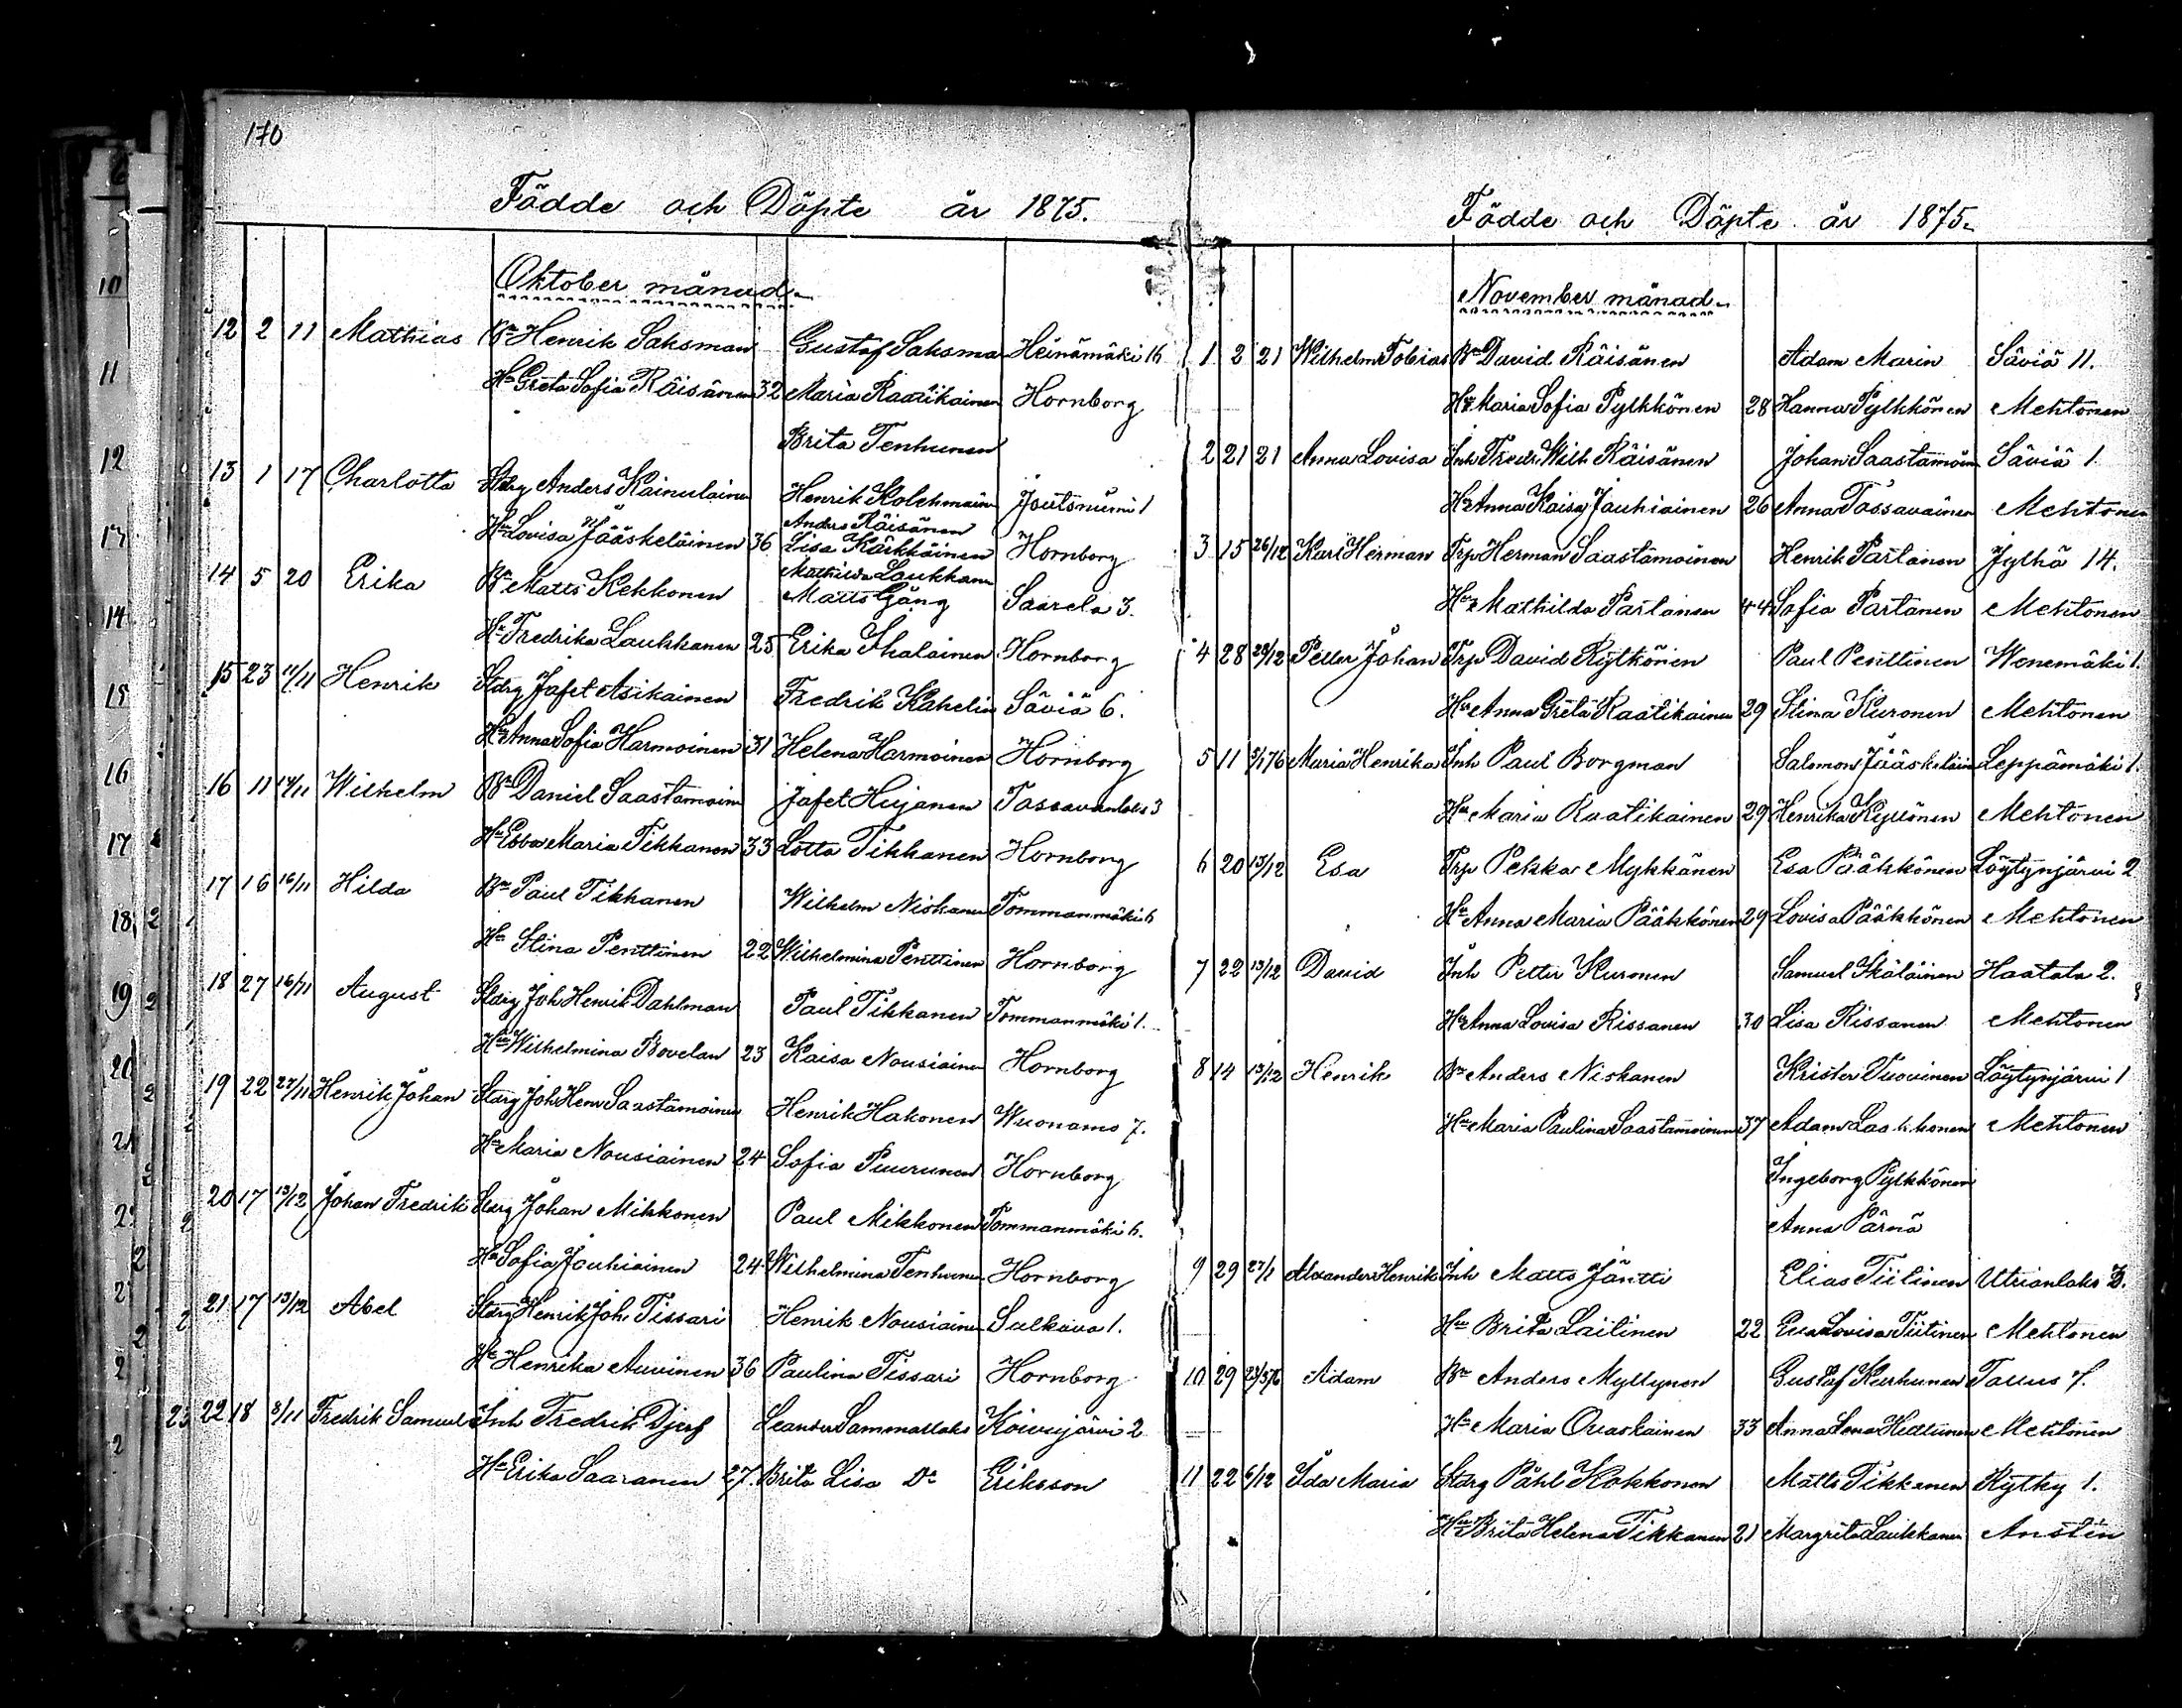 170
Födde och Döpte år 1875.
Oktober månad.
12 2 11 Mathias Bn Henrik Saksman Gustaf Saksma Heinämäki 16
Hu Greta Sofia Räisänen 32 Maria Raatikainen Hornborg
Brita Tenhunen
13 1 17 Charlotta Stdrg Anders Kainulainen Henrik Kolehmain Joutsnumi 1
Anders Räisänen
Hu Lovisa Jääskeläinen 36 Lisa Kärkkäinen Hornborg
Mathilda Laukkann
14 5 20 Erika Bn Matts Kekkonen Matts Gång Saarela 3.
Hu Fredrika Laukkanen 25 Erika Ihalainen Hornborg
15 23 11/11 Henrik Stdrg Jafet Asikainen Fredrik Kahelin Säviä 6.
Hu Anna Sofia Harmoinen 31 Helena Harmoinen Hornborg
16 11 14/11 Wilhelm Bn Daniel Saastamoin Jafet Hujanen Tossavanlaks 3
Hu Ebba Maria Tikkanen 33 Lotta Tikkanen Hornborg
17 16 16/11 Hilda Bn Paul Tikkanen Wilhelm Niskanen Tommanmäki 6
Hu Stina Penttinen 22 Wilhelmina Penttinen Hornborg
18 27 16/11 August Stdrg Joh Henrik Dahlman Paul Tikkanen Tommanmäki 1.
Hu Wilhelmina Bovelan 23 Kaisa Nousiainen Hornborg
19 22 27/11 Henrik Johan Stdrg Joh Henr Saastamoinen Henrik Hakonen Wuonamo 7.
Hu Maria Nousiainen 24 Sofia Puurunen Hornborg
20 17 13/12 Johan Fredrik Stdrg Johan Mikkonen Paul Mikkonen Tommanmäki 6.
Hu Sofia Jouhiainen 24 Wilhelmina Tenhunen Hornborg
21 17 13/12 Abel Stdrg Henrik Joh. Tissari Henrik Nousiainen Sulkava 1.
Hu Henrika Auvinen 36 Paulina Tissari Hornborg
22 18 8/11 Fredrik Samuel Inh Fredrik Djerf Leander Sammallaks Koivujärvi 2
Hu Erika Saaranen 27. Brita Lisa Do Eriksson
Födde och Döpte år 1875.
November månad.
1 2 21 Wilhelm Tobias Bn David Räisänen Adam Marin Säviä 11.
Hu Maria Sofia Pylkkönen 28 Hanna Pylkkönen Mehtonen
2 21 21 Anna Lovisa Inh Fredr. Wilh Räisänen Johan Saastamoin Säviä 1.
Hu Anna Kaisa Jauhiainen 26 Anna Tossavainen Mehtonen
3 15 26/12 Karl Herman Trp Herman Saastamoinen Henrik Partanen Jylhä 14.
Hu Mathilda Partanen 44 Sofia Partanen Mehtonen
4 28 29/12 Petter Johan Trp David Rytkönen Paul Penttinen Wenemäki 1.
Hu Anna Greta Raatikainen 29 Stina Kuronen Mehtonen
5 11 5/1 76 Maria Henrika Inh Paul Borgman Salomon Jääskeläin Leppämäki 1.
Hu Maria Raatikainen 29 Henrika Kyllönen Mehtonen
6 20 13/12 Esa Trp Pekka Mykkänen Esa Pääkkönen Löytynjärvi 2
Hu Anna Maria Pääkkönen 29 Lovisa Pääkkönen Mehtonen
7 22 13/12 David Inh Petter Kuronen Samuel Kääläinen Haatala 2.
Hu Anna Lovisa Rissanen 30 Lisa Rissanen Mehtonen
8 14 13/12 Henrik Bn Anders Niskanen Krister Tuovinen Löytynjärvi 1
Hu Maria Paulina Saastamoinen 37 Adam Laakkonen Mehtonen
Ingeborg Pylkkönen
Anna Pärnä
9 29 27/1 Alexander Henrik Inh Matts Jäntti Elias Tiitinen Utrianlaks 3.
Hu Brita Laitinen 22 Eva Lovisa Tiitinen Mehtonen
10 29 Adam Bn Anders Myllynen Gustaf Kerhunen Talus 7.
Hu Maria Ovaskainen 33 Anna Lena Hedtunen Mehtonen
11 22 6/12 Ida Maria Stdrg Påhl Kokkonen Matts Tikkanen Kytky 1.
Hu Brita Helena Tikkanen 21 Margreta Laukkanen Anstén